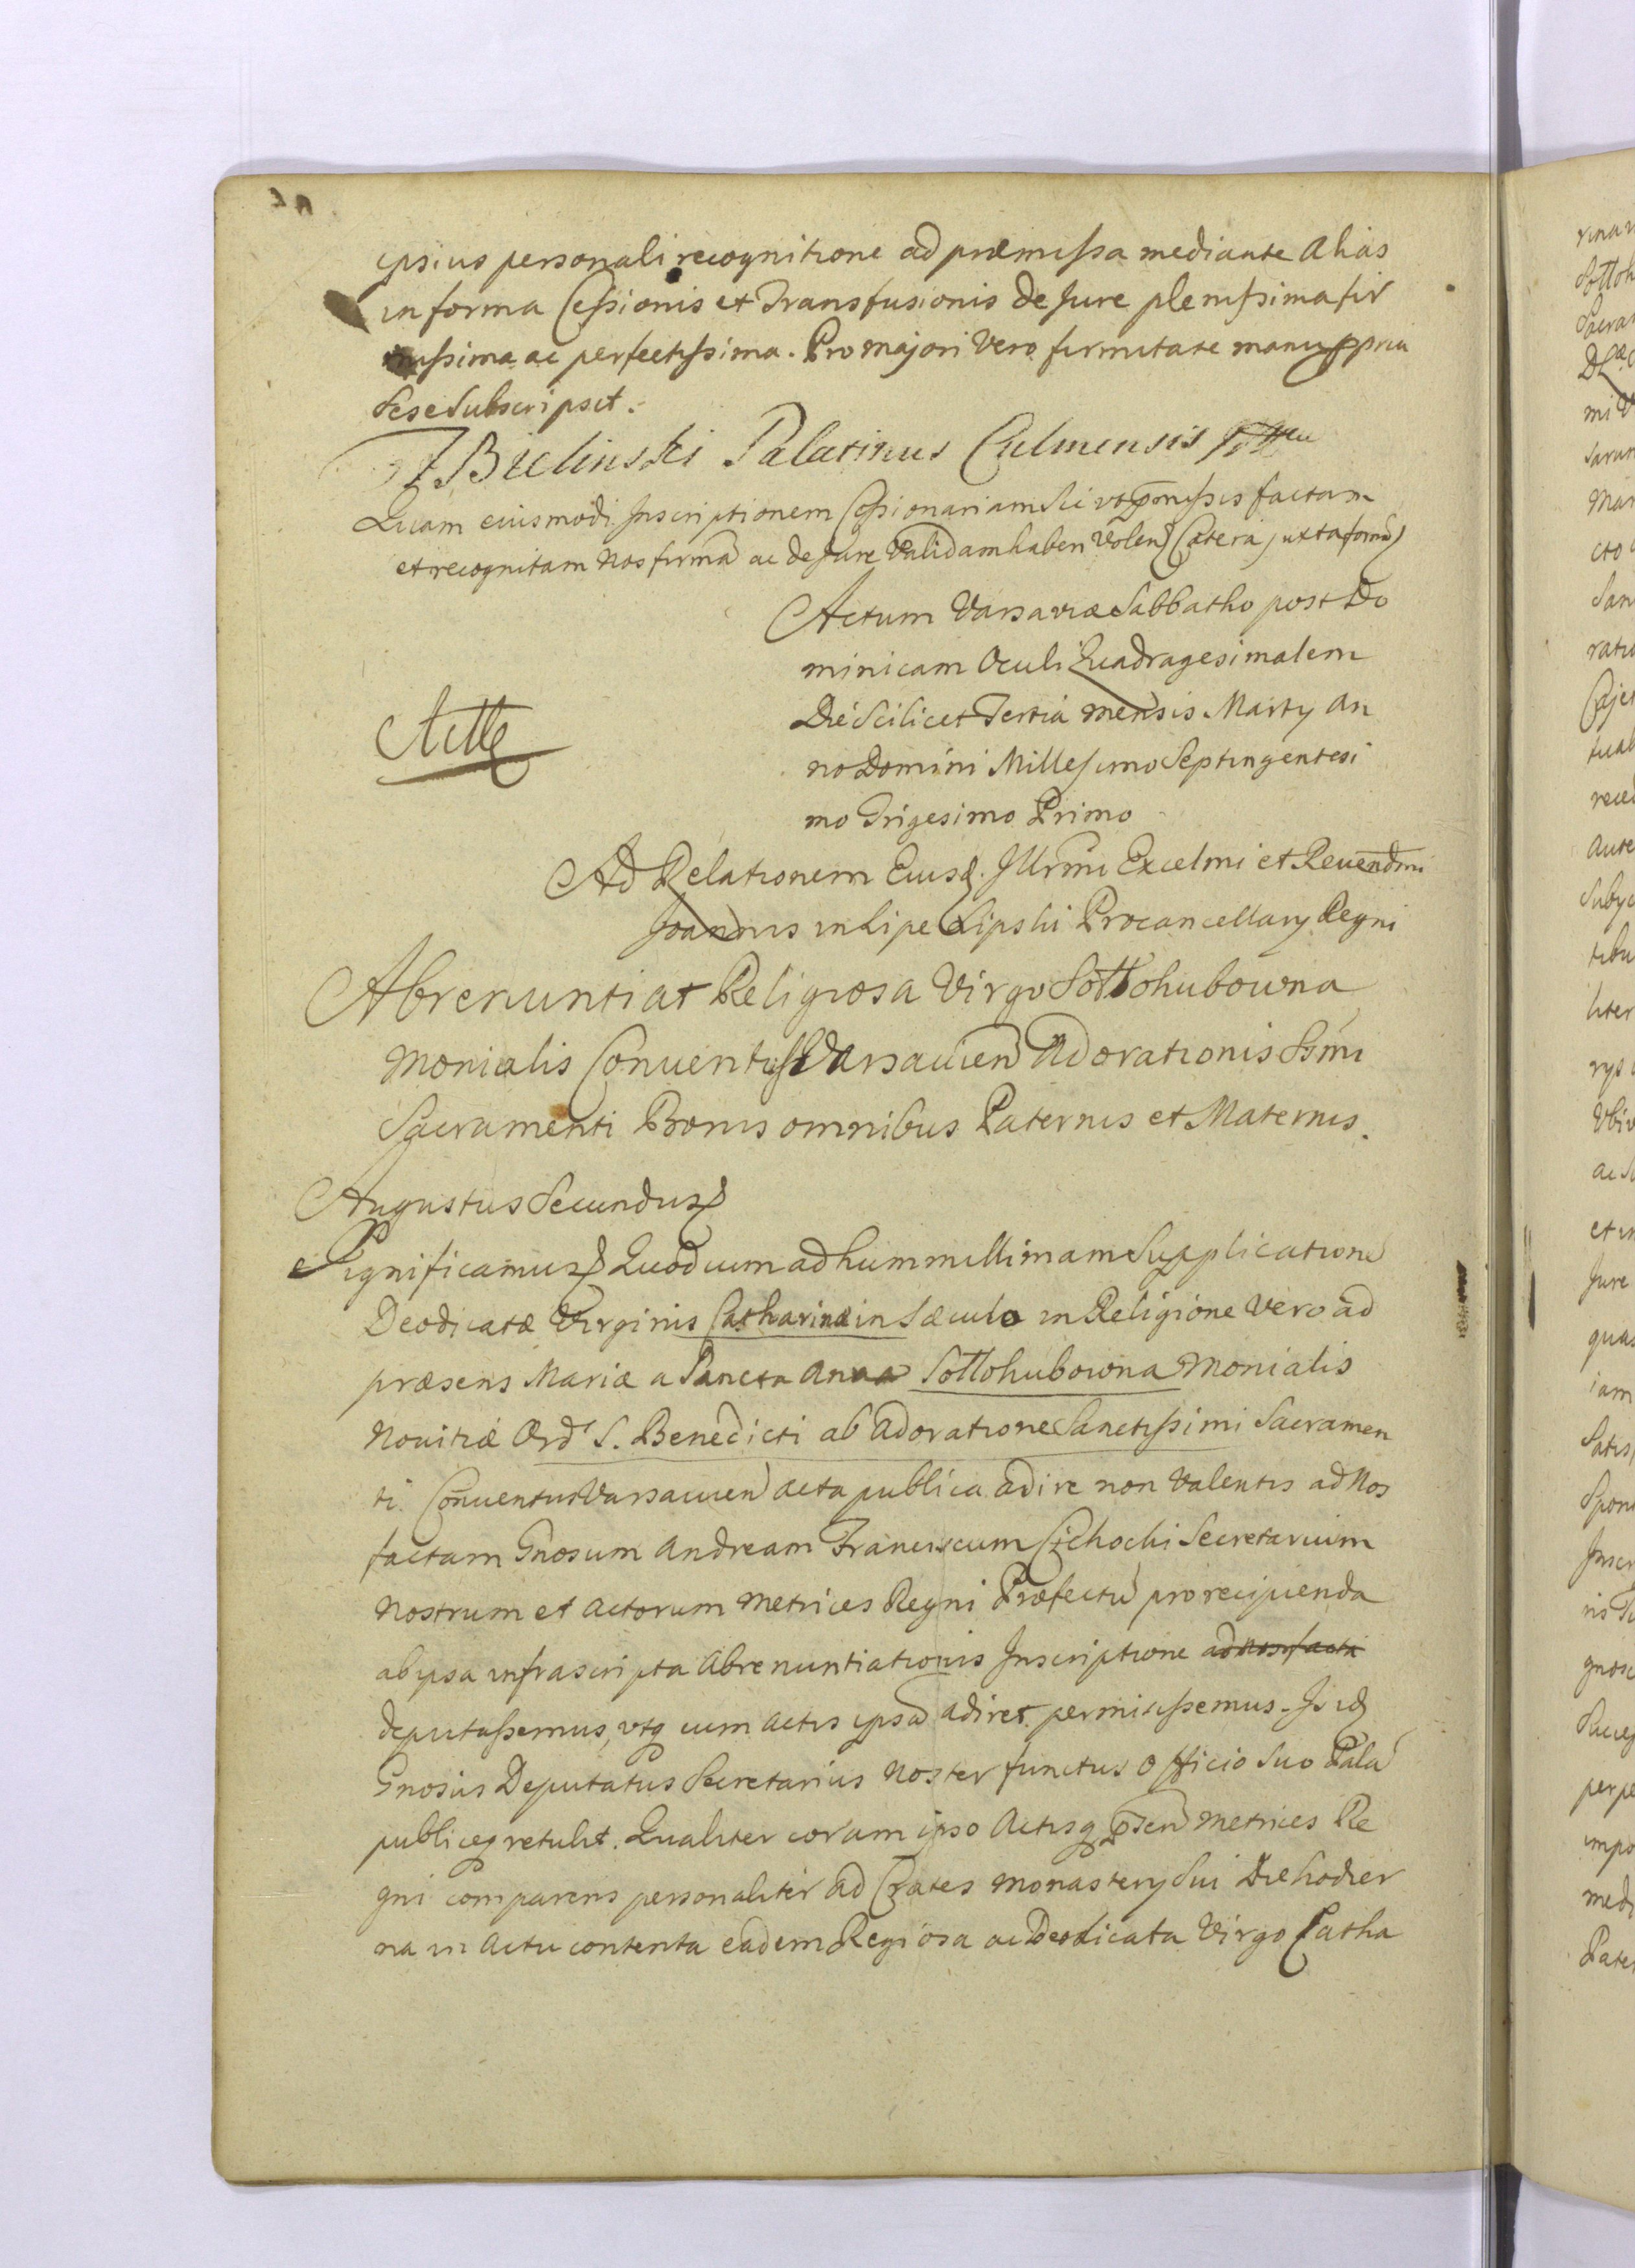 ipsius personali recognitione ad præmissa mediante Alias
in forma Cessionis et Transfusionis de Jure plenissima fir
missima ac perfectissima. Pro majori Vero firmitate manu ppria
Sese Subscripsit.
Bielinski Palatinus Culmensis
Quam eiusmodi Inscriptionem Cessionariam Sic vt pmissis factam
et recognitam Nos firmã ac de Jure Validam haberi Volen Cætera juxta form
Actum Varsaviæ Sabbatho post Do
minicam Oculi Quadragesimalem
Die Scilicet Tertia mensis Marty An
no Domini Millesimo Septingentesi
mo Trigesimo Primo
Ad Relationem Eiusd. Illrmi Excelmi et Reuendmi
Joannis in Lipe Lipski Procancellary Regni
Abrenuntiat Religiosa Virgo Sottohubowna
Monialis Conuentus Varsauien Adorationis Ssmi
Sacramenti Bonis omnibus Paternis et Maternis.
Augustus Secundus
Significamus Quod cum ad hummillimam Supplicationẽ
Deodicatæ Virginis Catharinæ in Sæculo in Religione Vero ad
præsens Mariæ a Sancta Anna Sottohubowna Monialis
Nouitiæ Ord S. Benedicti ab Adoratione Sanctissimi Sacramen
ti Conuentus Varsauien acta publica adire non Valentis ad Nos
factam Gnosum Andream Franciscum Cichocki Secretarium
Nostrum et Actorum Metrices Regni Præfectũ pro recipienda
ab ipsa infrascripta Abrenuntiationis Inscriptione ad Nos facta
deputassemus, vtq cum Actis ipsã adiret permisissemus. Is id
Gnosus Deputatus Secretarius Noster functus Officio Suo Palã
publiceq retulit. Qualiter coram ipso Actisq psen Metrices Re
gni comparens personaliter ad Crates Monastery Sui Die hodier
na in Actu contenta eadem Regiosa ac Deodicata Virgo Catha